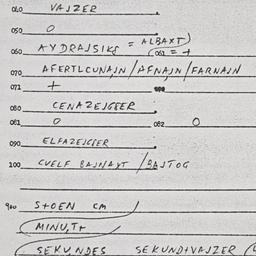 040 VAJZER
050 0
060 AYDRAJSIKS = ALBAXT
(061 = +
070 AFERTLCUNAJN / AFNAJN / FARNAJN
071 +
080 CENAZEJGEER
081 0 082 0
090 ELFAZEJGER
100 CVELF BAJNAXT / BAJTOG
900 STOEN CM
MINU,T+
SEKUNDES SEKUND+VAJZER